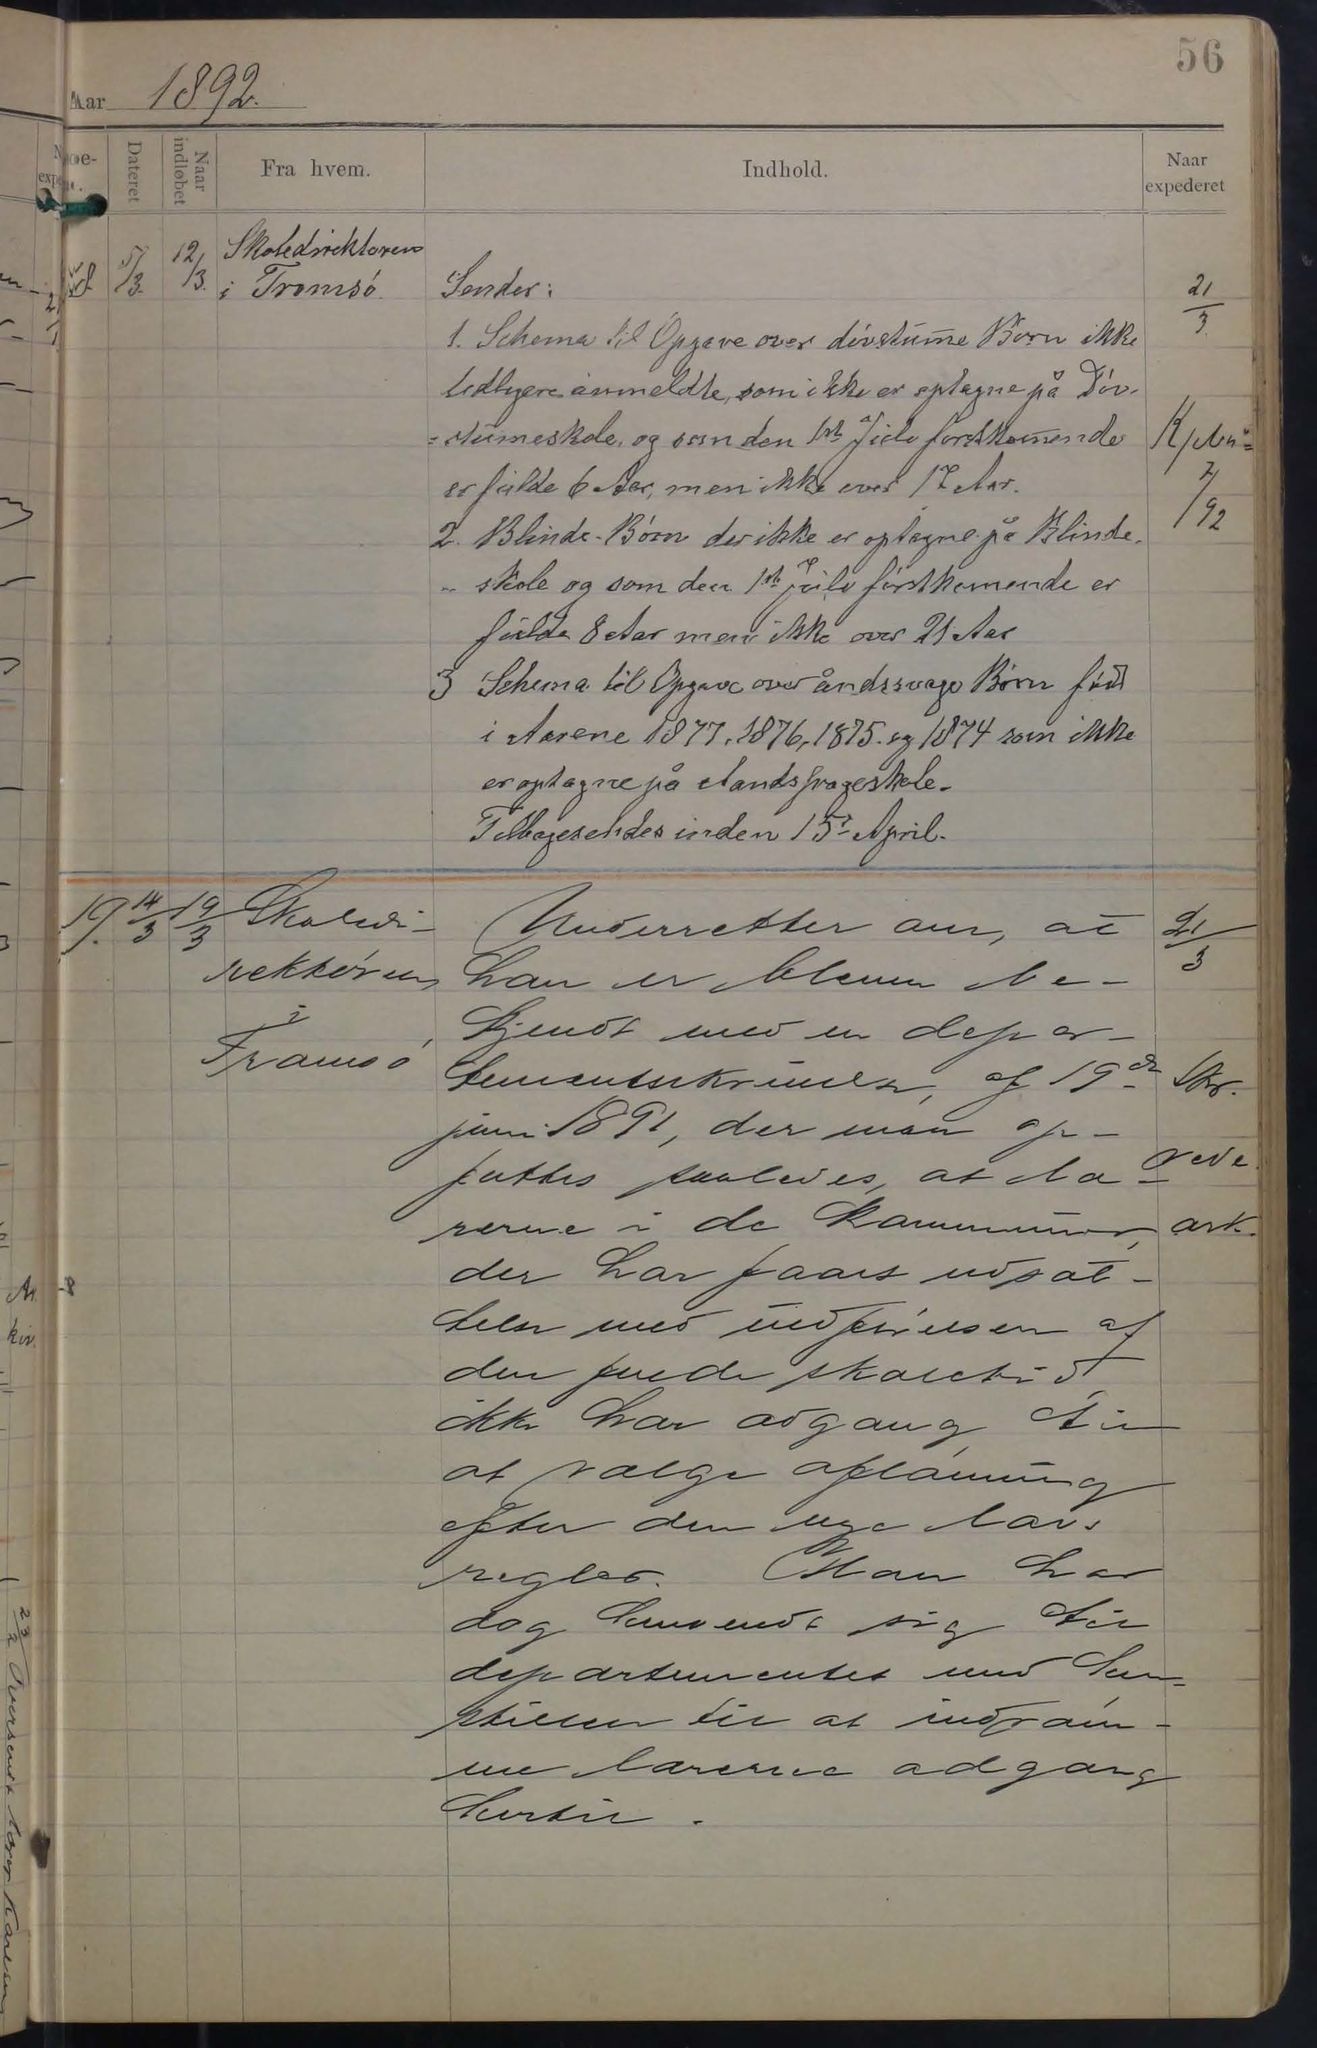 56
Aar 1892.
Dateret
Naar indløbet
Fra hvem.
Indhold.
Naar expederet
5/3 12/3 Skoledirektøren
i Tromsø. Sender: 21/3
1. Schema til Opgave over døvstumme Børn ikke
tidligere anmeldte, som ikke er optagne på Døv-
stumeskole, og som den 1st Juli førstkomende
er fulde 6 Aar, men ikke over 17 Aar.
2. Blinde-Börn der ikke er optagne på Blinde-
skole og som den 1ste juli förstkomende er
fulde 8 Aar men ikke over 21 Aar
3 Schema til Opgave over åndssvage Börn född
i Aarene 1877, 1876, 1875 og 1874 som ikke
er optagne på Aandssvageskole.
Tilbagesendes inden 15de April.
19. 14/3 19/3 Skoledi-
rektören
i
Tromsö
Underretter om, at 21/3
han er bleven be-
kjendt med en depar-
tementsskrivelse, af 19de Skr.
juni 1891, der maa op-
fattes saaledes, at læ-
rerne i de kommuner, ark.
der har faaet udsæt-
telse med indförelsen af
den fulde skoletid
ikke har adgang til
at vælge aflönning
efter den nye lovs
regler. Han har
dog henvendt sig til
departementet med hen-
stillen til at indröm-
me lærerne adgang
hertil.